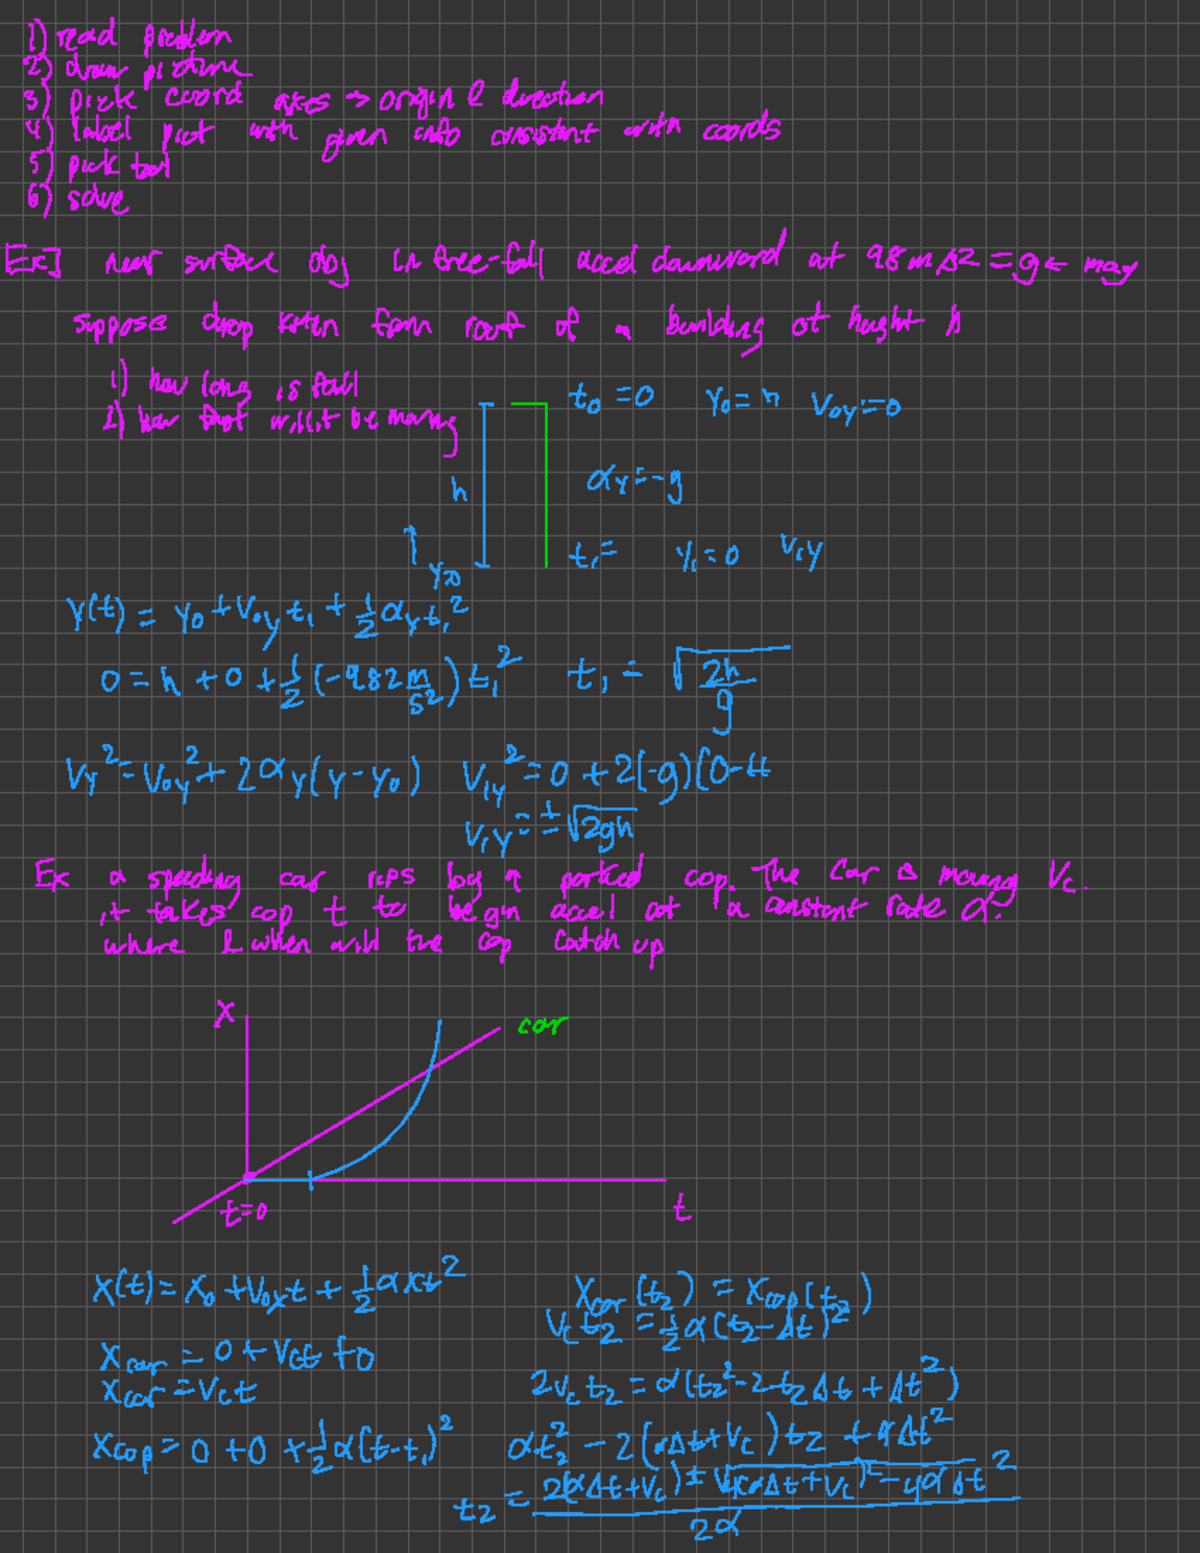 1) read problem
2) draw picture
3) pick coord axes → origin & direction
4) label pict with given info consistent with coords
5) pick tool
6) solve
Ex] near surface obj in free-fall accel downward at 9.8 m/s2 = g ← mag
suppose drop kitten from roof of a building of height h
1) how long is fall
2) how fast will it be moving
t₀ = 0 y₀ = h V₀y = 0
h
αy = -g
t₁ = y₁ = 0 V₁y
y(t) = y₀ + V₀y t₁ + 1/2 αy t₁²
0 = h + 0 + 1/2 (-9.82 m/s²) t₁² t₁ = √(2h/g)
Vy² = V₀y² + 2αy(y - y₀) V₁y² = 0 + 2(-g)(0-H
V₁y = ± √2gh
Ex a speeding car rips by a parked cop. The car is moving Vc.
it takes cop t to begin accel at a constant rate α.
where & when will the cop catch up
x
car
t=0
t
x(t) = x₀ + V₀x t + 1/2 αx t²
Xcar = 0 + Vct + 0
Xcar = Vct
Xcop = 0 + 0 + 1/2 α(t-t₁)²
Xcar(t₂) = Xcop(t₂)
Vc t₂ = 1/2 α(t₂-Δt)²
2Vc t₂ = α(t₂² - 2t₂Δt + Δt²)
αt₂² - 2(αΔt + Vc)t₂ + αΔt²
t₂ = 2(αΔt+Vc) ± √4(αΔt+Vc)² - 4αΔt² / 2α